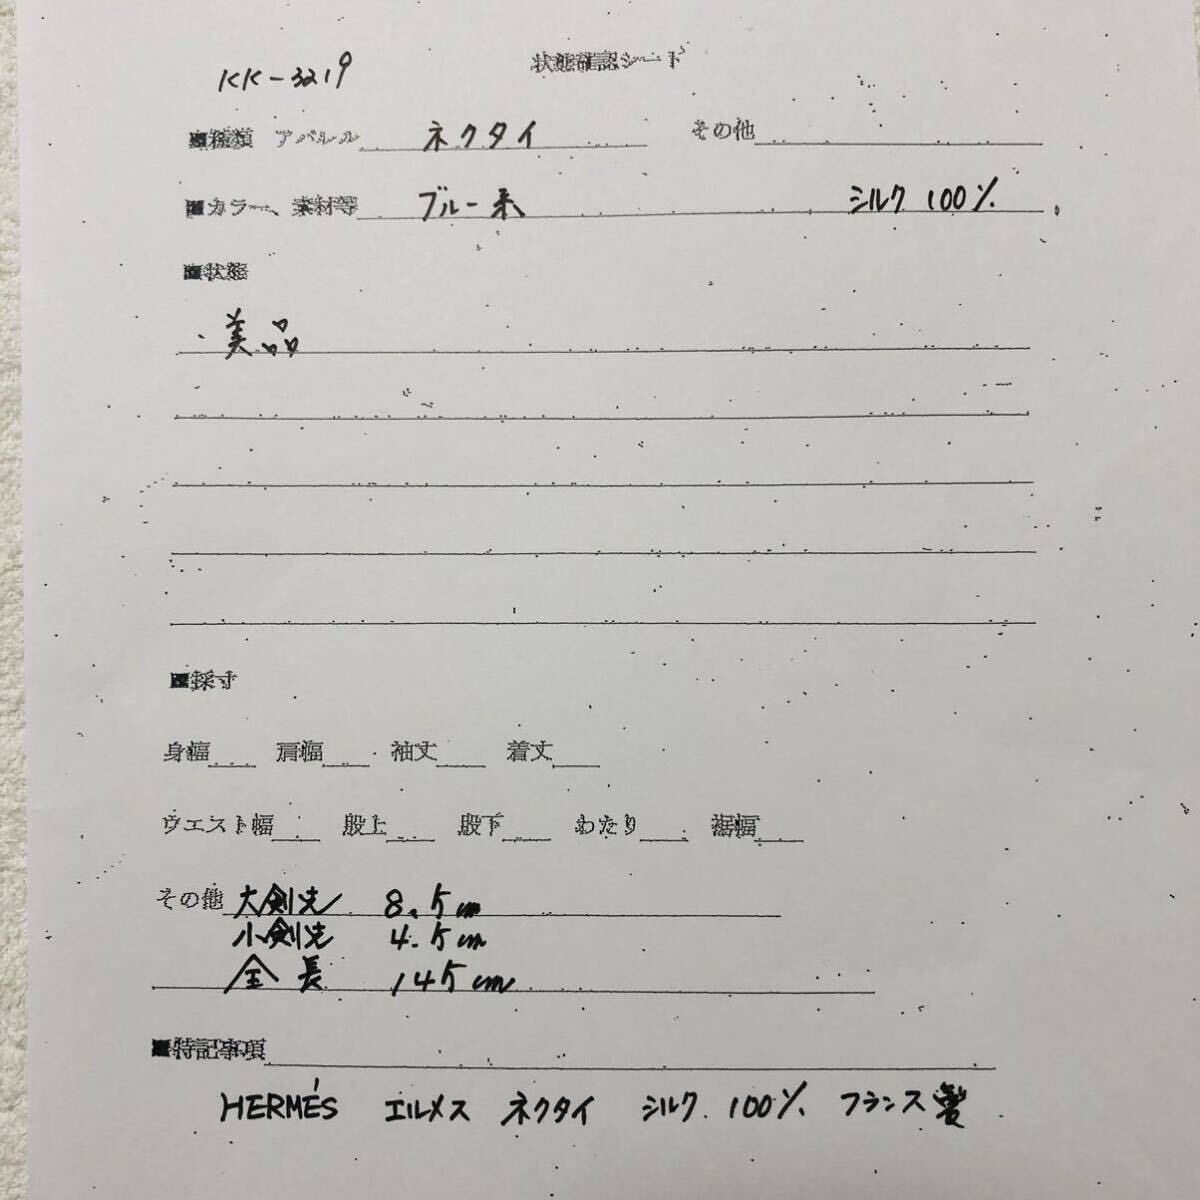 状態確認シート
KK-3219
■種類 アパレル ネクタイ その他
■カラー、素材等 ブルー系 シルク 100%
■状態
・美品
■採寸
身幅 肩幅 袖丈 着丈
ウエスト幅 股上 股下 わたり 裾幅
その他 大剣先 8.5cm
小剣先 4.5cm
全長 145cm
■特記事項
HERMÉS エルメス ネクタイ シルク 100% フランス製